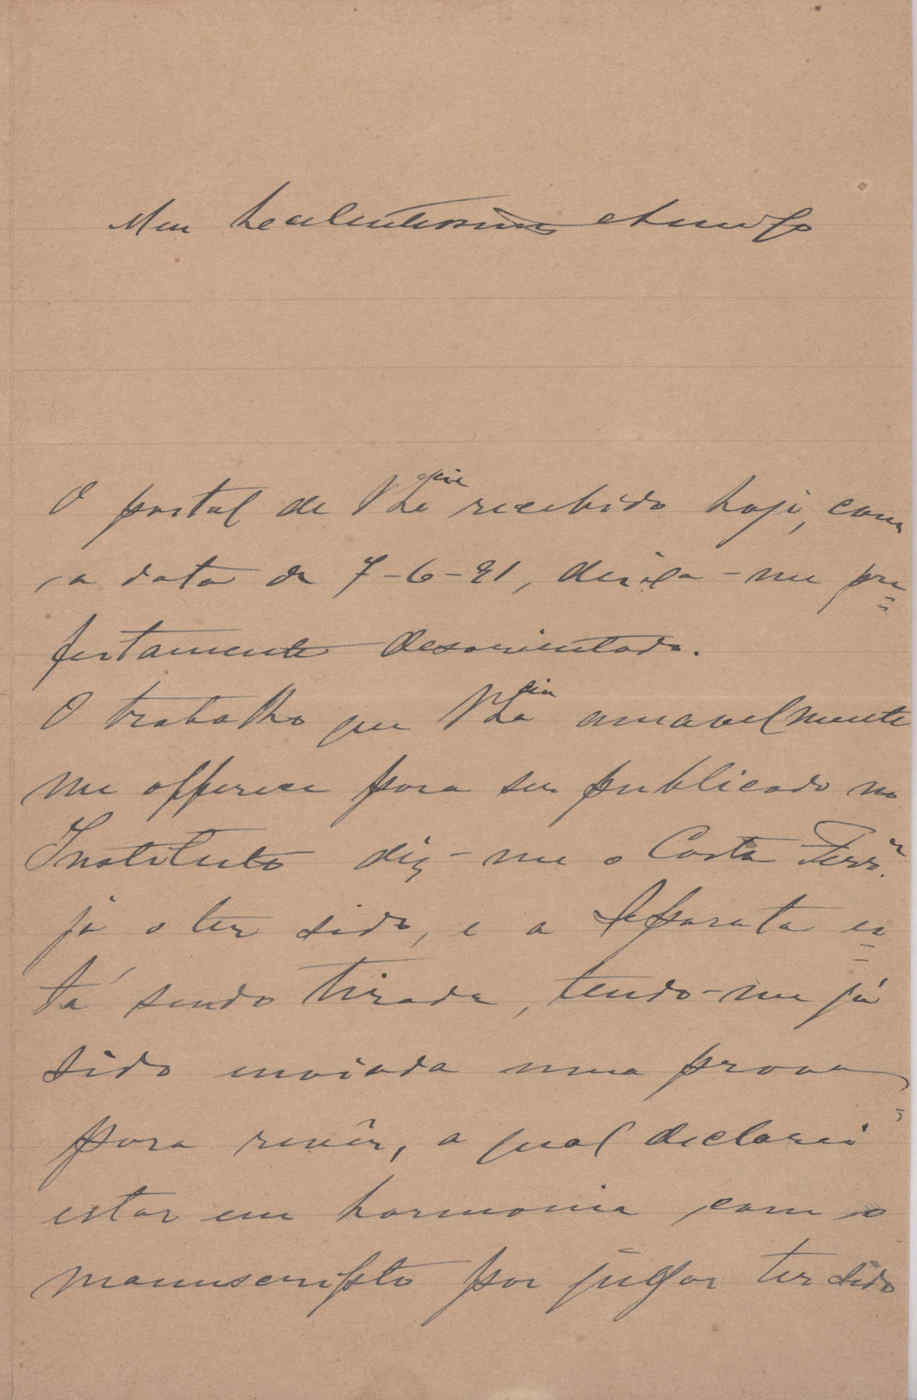 Meu Amigo
O postal de V. Ex.cia recebido hoje, com
a data de 7-6-91, deixa-me per=
feitamente desorientado.
O trabalho que V. Ex.cia amavelmente
me offerece para ser publicado no
Instituto diz-me o Costa Ferr.ra
já o ter sido, e a Separata es=
tá sendo tirada, tendo-me já
sido enviada uma prova
para revêr, a qual declarei
estar em harmonia com o
manuscripto por julgar ter sido